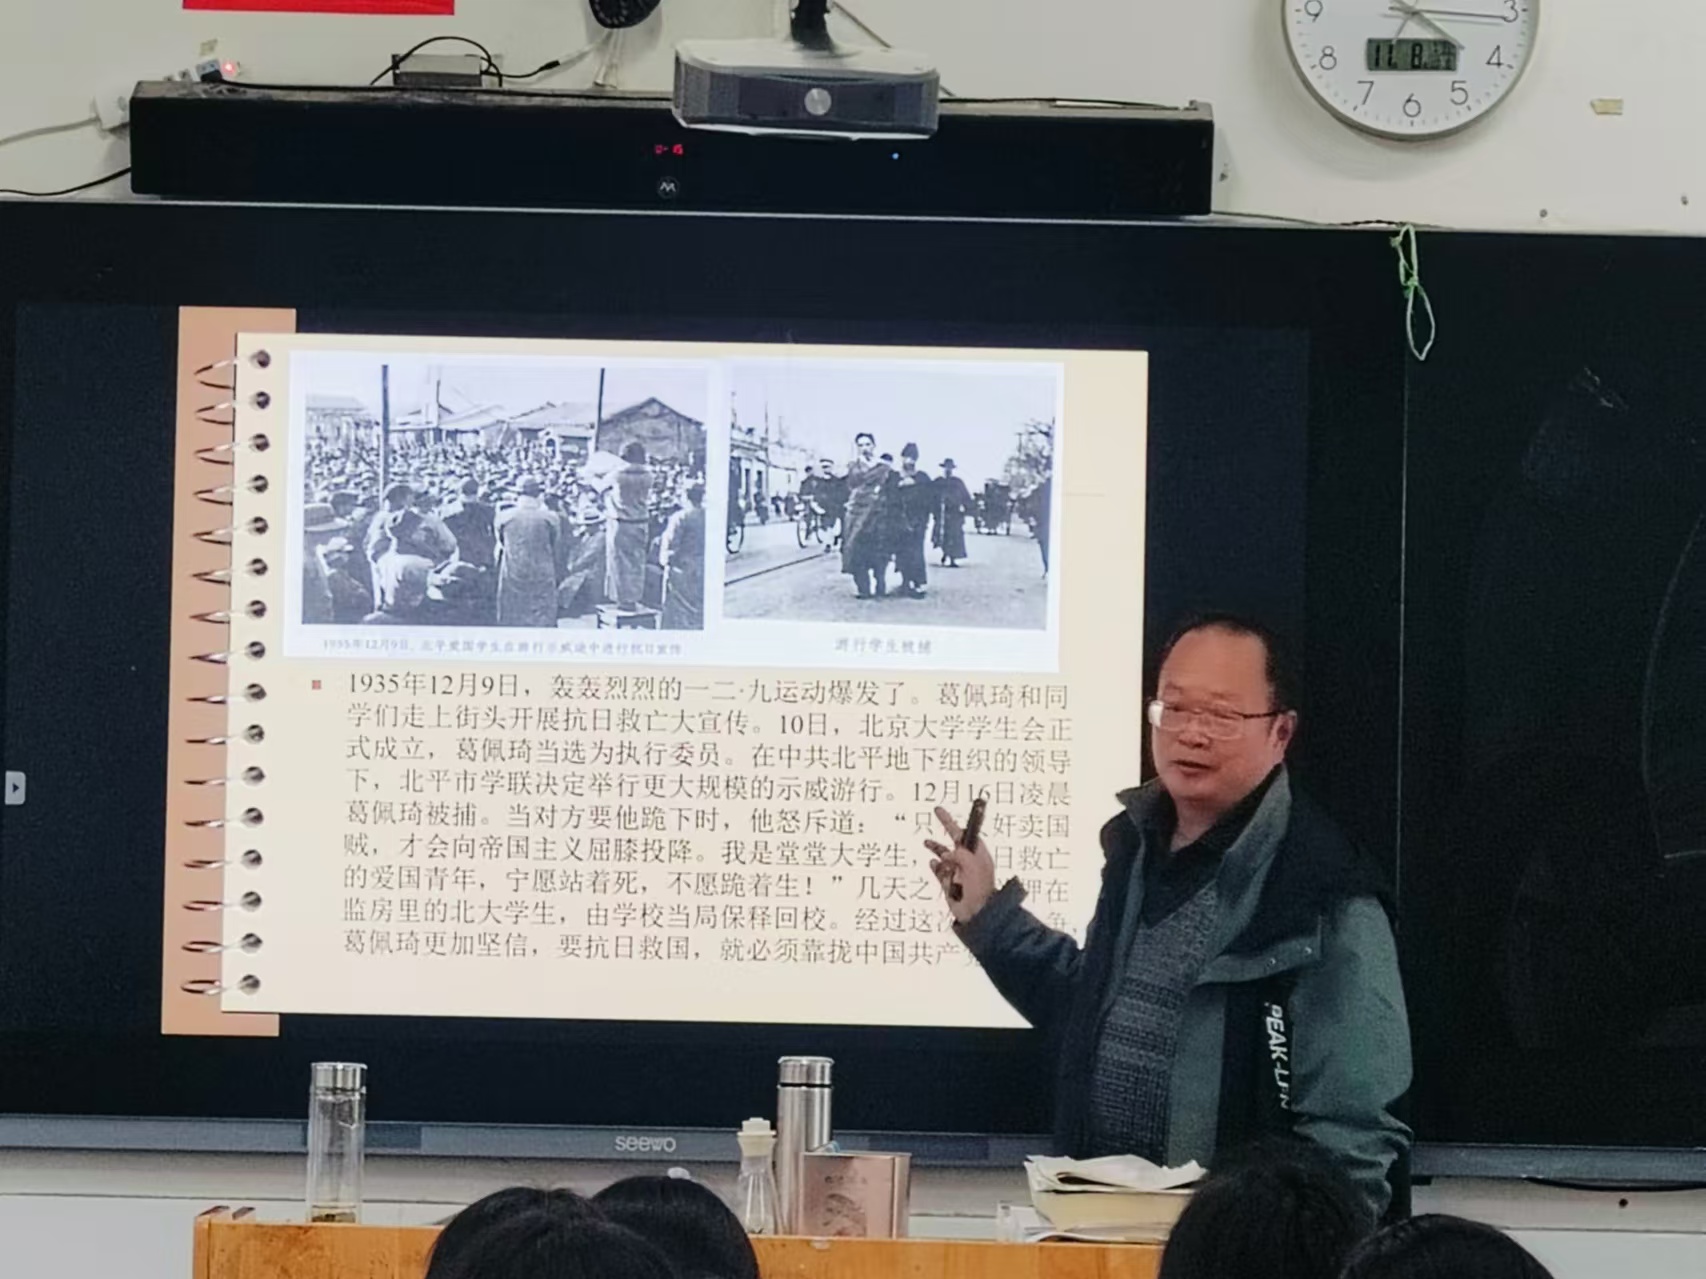 9
3
8
4
7
6
5
11 8
1935年12月9日，北平爱国学生在游行示威途中进行抗日宣传
游行学生被捕
1935年12月9日，轰轰烈烈的一二·九运动爆发了。葛佩琦和同
学们走上街头开展抗日救亡大宣传。10日，北京大学学生会正
式成立，葛佩琦当选为执行委员。在中共北平地下组织的领导
下，北平市学联决定举行更大规模的示威游行。12月16日凌晨
葛佩琦被捕。当对方要他跪下时，他怒斥道：“只 奸卖国
贼，才会向帝国主义屈膝投降。我是堂堂大学生， 日救亡
的爱国青年，宁愿站着死，不愿跪着生！”几天之 押在
监房里的北大学生，由学校当局保释回校。经过这次 争，
葛佩琦更加坚信，要抗日救国，就必须靠拢中国共产党
PEAK-L
seewo